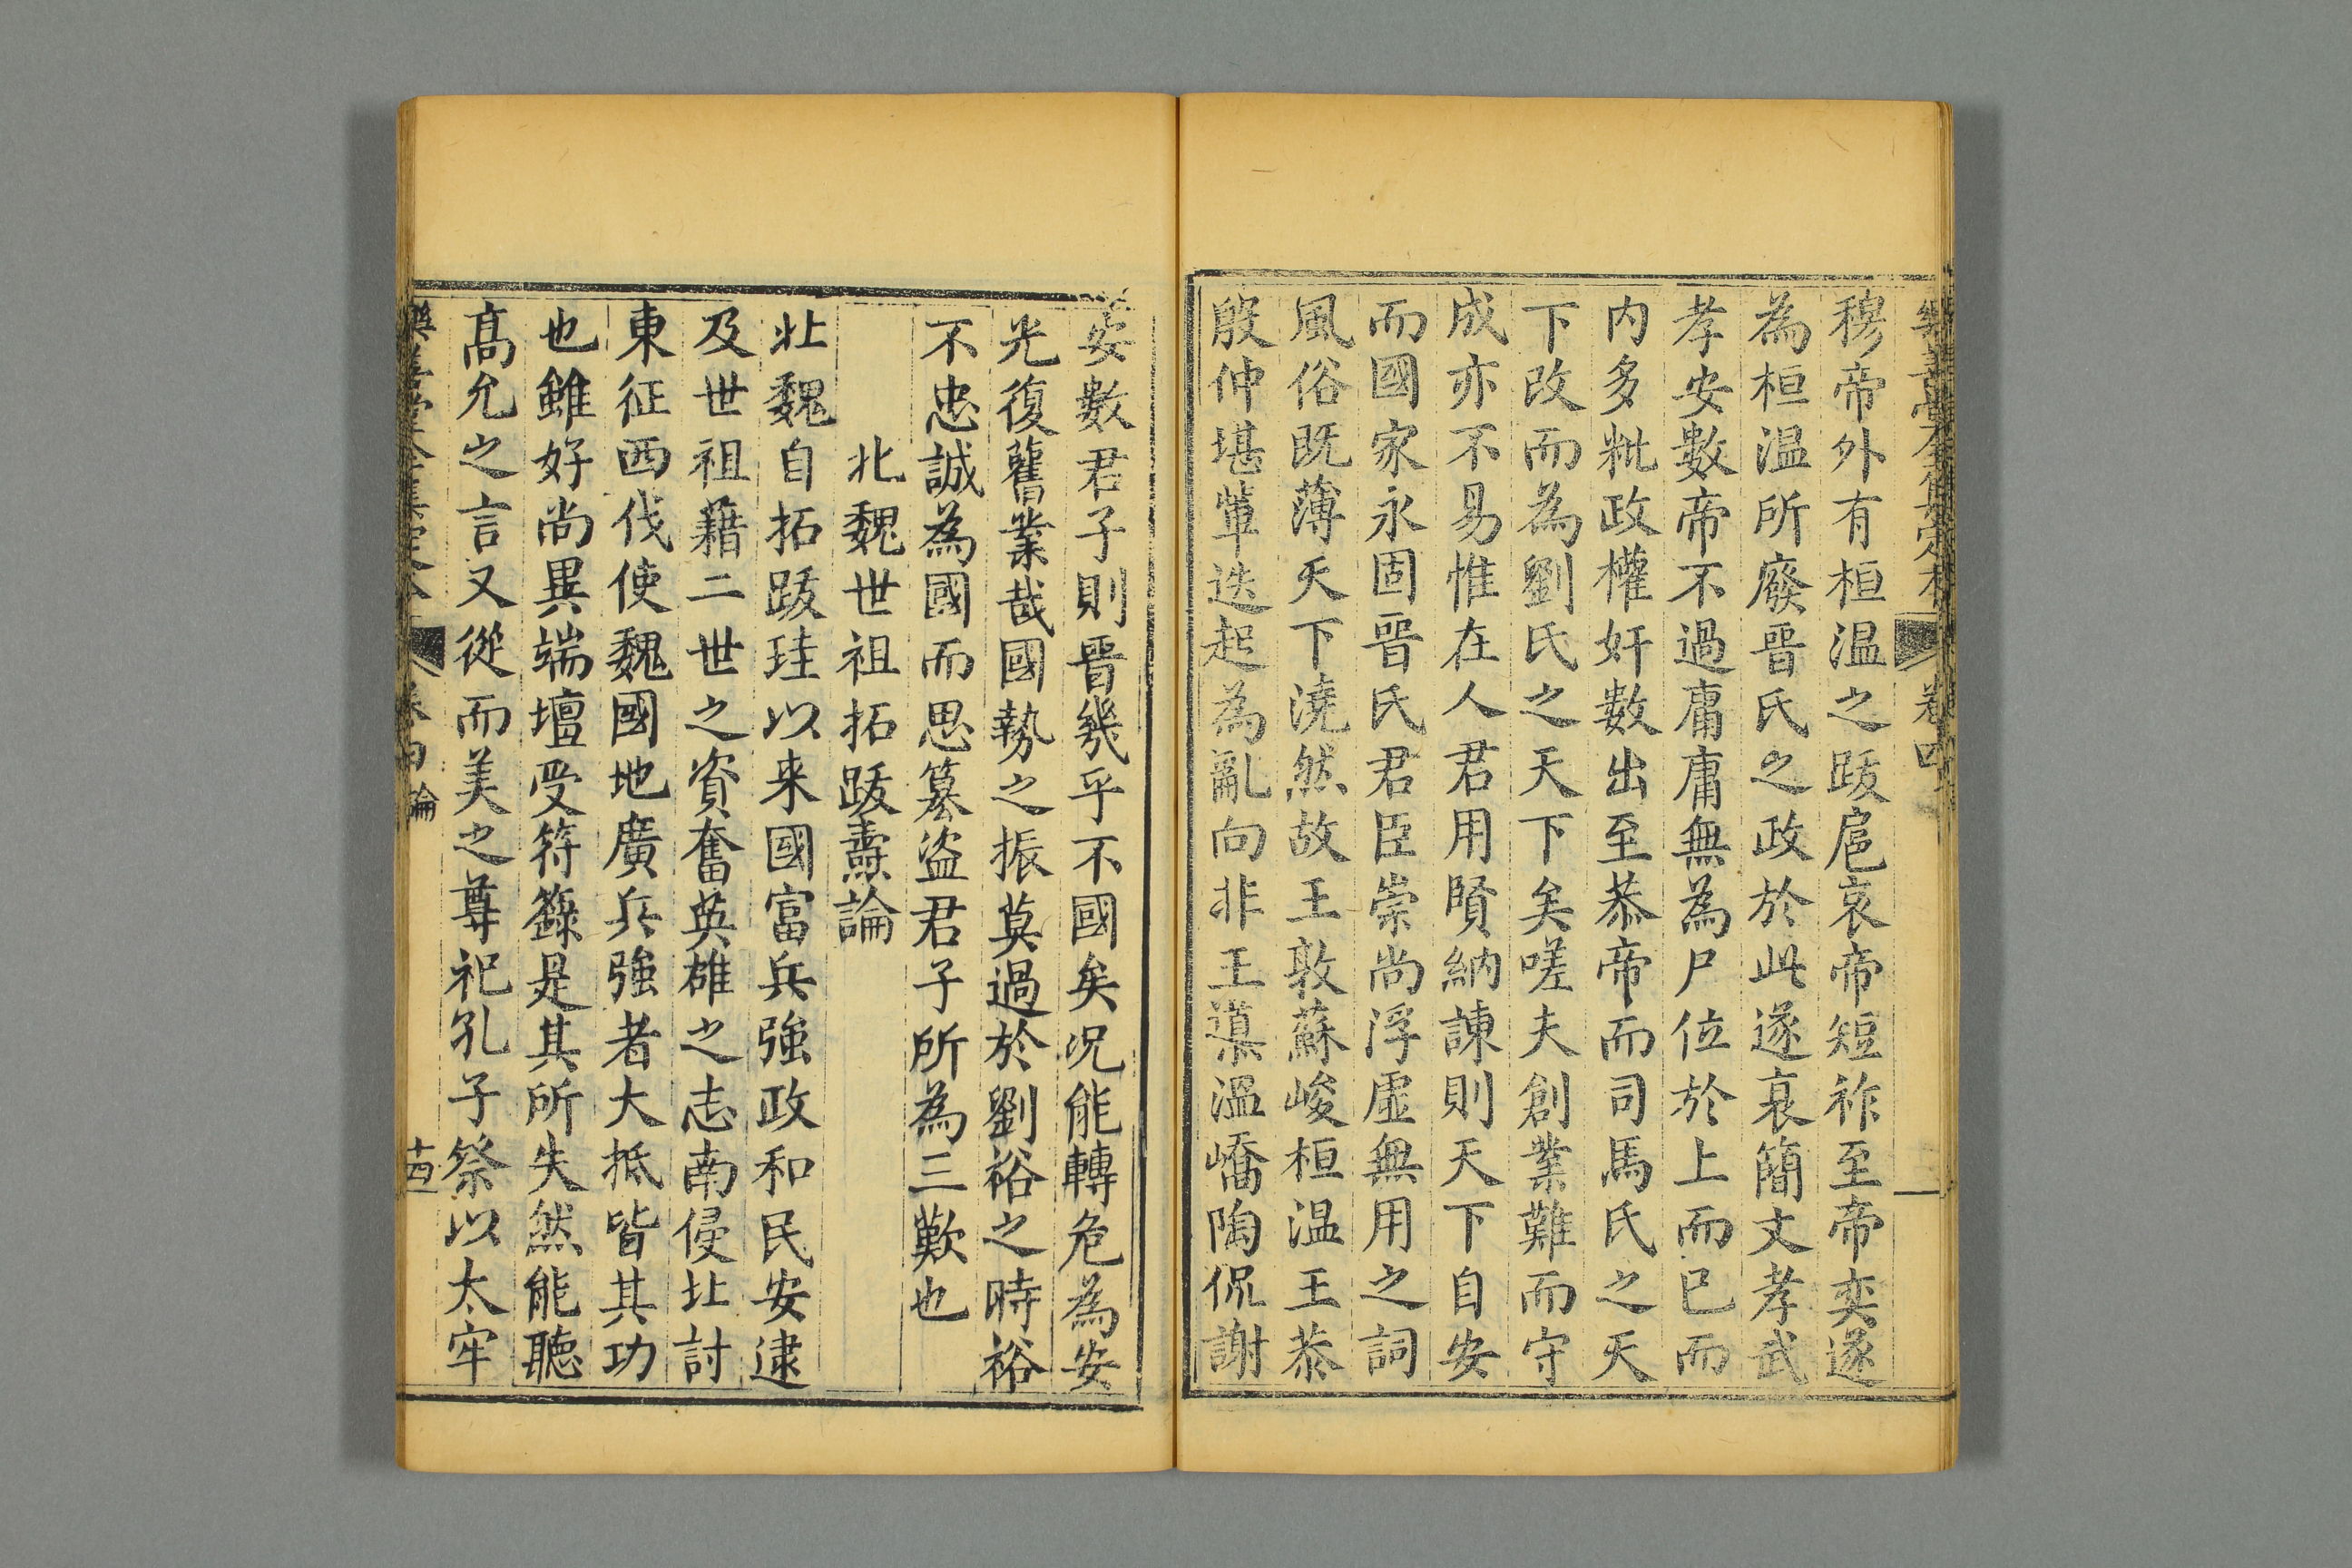 樂善堂全集定本 卷四
穆帝外有桓温之跋扈哀帝短祚至帝奕遂
為桓温所廢晉氏之政於此遂衰簡文孝武
孝安數帝不過庸庸無為尸位於上而已而
内多粃政權奸數出至恭帝而司馬氏之天
下改而為劉氏之天下矣嗟夫創業難而守
成亦不易惟在人君用賢納諫則天下自安
而國家永固晉氏君臣崇尚浮虛無用之詞
風俗既薄天下澆然故王敦蘇峻桓温王恭
殷仲堪輩迭起為亂向非王導温嶠陶侃謝
安數君子則晉幾乎不國矣况能轉危為安
光復舊業哉國勢之振莫過於劉裕之時裕
不忠誠為國而思簒盜君子所為三歎也
北魏世祖拓跋燾論
北魏自拓跋珪以来國富兵強政和民安逮
及世祖藉二世之資奮英雄之志南侵北討
東征西伐使魏國地廣兵強者大抵皆其功
也雖好尚異端壇受符籙是其所失然能聽
髙允之言又從而美之尊祀孔子祭以太牢
樂善堂全集定本 卷四 論 十四